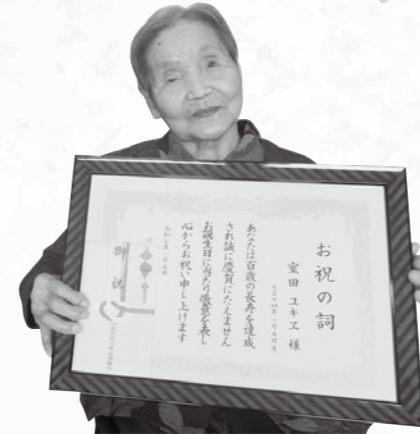 お祝の詞
室田 ユキヱ 様
大正十四年一月五日生
あなたは百歳の長寿を達成
され誠に慶賀にたえません
お誕生日に当たり微意を表し
心からお祝い申し上げます
御祝